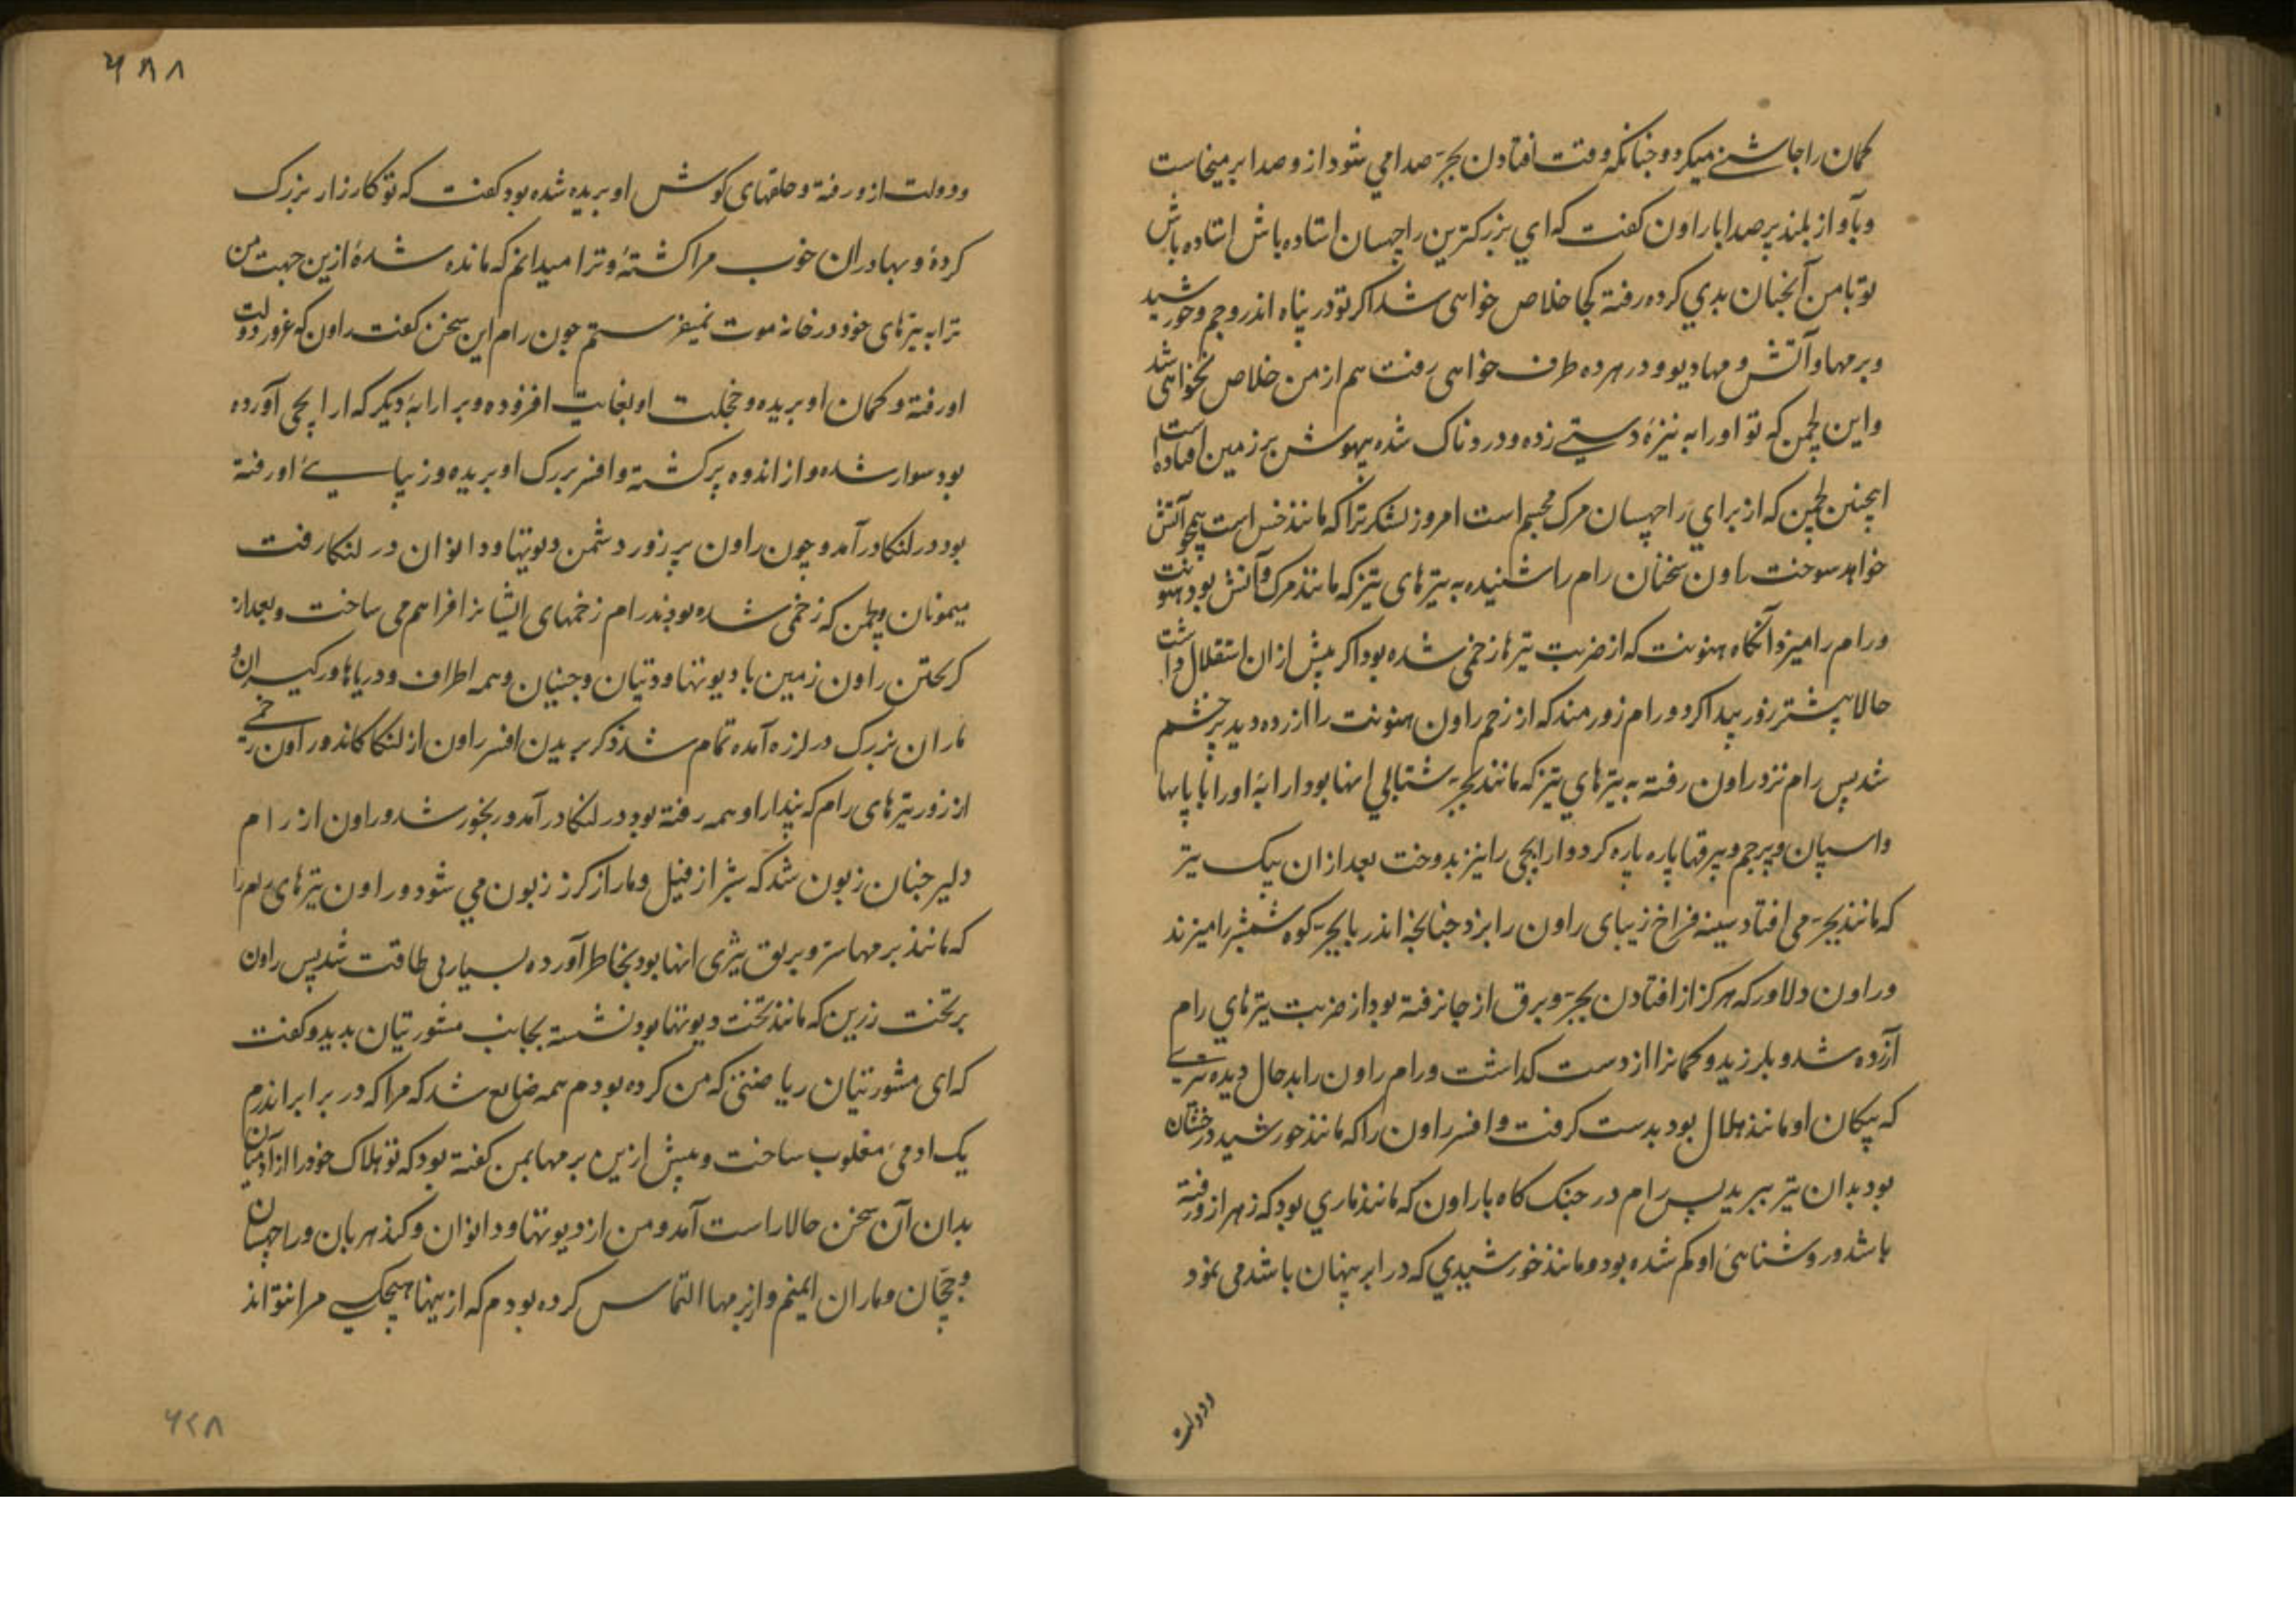 کمان را چاشنی میکرد و چنانکه وقت افتادن بجر صدا می شود ازو صدا بر میخاست
و بآواز بلند پر صدا با راون کفت که ای بزرکترین راچهسان استاده باش استاده باش
تو با من آنچنان بدی کرده رفته کجا خلاص خواهی شد اکر تو در پناه اندر و جم و خورشید
و برمها و آتش و مهادیو و در هر ده طرف خواهی رفت هم از من خلاص نخواهی شد
و این لچمن که تو او را به نیزهٔ دستی زده و دردناک شده بیهوش بر زمین افتاده است
اینچنین لچمن که از برای راچهسان مرک مجسم است امروز لشکر ترا که مانند خس است همچو آتش
خواهد سوخت راون سخنان رام را شنیده به تیرهای تیز که مانند مرک و آتش بود هنونت
و رام را میزد آنکاه هنونت که از ضربت تیرها زخمی شده بود اکر پیش ازان استقلال داشت
حالا بیشتر زور پیدا کرد و رام زورمند که از زخم راون هنونت را ازرده دید پر خشم
شد پس رام نزد راون رفته به تیرهای تیز که مانند بجر شتابی انها بود ارابهٔ او را با پایها
و اسپان و پرچم و بیرقها پاره پاره کرد و ارابچی را نیز بدوخت بعد ازان بیک تیر
که مانند بجر می افتاد سینه فراخ زیبای راون را بزد چنانچه اندر با بجر کوه را میزند
و راون دلاور که هرکز از افتادن بجر و برق از جا نرفته بود از ضربت تیرهای رام
آزرده شد و بلرزید و کمانرا از دست کذاشت و رام راون را بدحال دیده تیری
که پیکان او مانند هلال بود بدست کرفت و افسر راون را که مانند خورشید درخشان
بود بدان تیر ببرید پس رام در جنک کاه با راون که مانند ماری بود که زهر ازو رفته
باشد و روشنائی او کم شده بود و مانند خورشیدی که در ابر پنهان باشد می نمود
و دولت
۶۸۸
و دولت ازو رفته و حلقهای کوش او بریده شده بود کفت که تو کارزار بزرک
کردهٔ و بهادران خوب مرا کشتهٔ و ترا میدانم که مانده شدهٔ ازین جهت من
ترا به تیرهای خود در خانه موت نمیفرستم چون رام این سخن کفت راون که غرور و دولت
او رفته و کمان او بریده و خجلت او بغایت افزوده و بر ارابهٔ دیکر که ارابچی آورده
بود سوار شده و از اندوه پر کشته و افسر بزرک او بریده و زیبائی او رفته
بود در لنکا درآمد و چون راون پر زور دشمن دیوتها و دانوان در لنکا رفت
میمونان و لچمن که زخمی شده بودند رام زخمهای ایشانرا فراهم می ساخت و بعد از
کریختن راون زمین با دیوتها و دتیان و جنیان و همه اطراف و دریاها و رکیسران و
ماران بزرک در لرزه آمده تمام شد ذکر بریدن افسر راون از لنکا کاند و راون زخمی
از زور تیرهای رام که پندار او همه رفته بود در لنکا درآمد و رنجور شد و راون از رام
دلیر چنان زبون شد که شیر از فیل و مار از کرز زبون می شود و راون تیرهای رام را
که مانند برمهاستر و برق تیزی انها بود بخاطر آورده بسیار بی طاقت شد پس راون
بر تخت زرین که مانند تخت دیوتها بود نشسته بجانب مشورتیان بدید و کفت
که ای مشورتیان ریاضتی که من کرده بودم همه ضایع شد که مرا که در برابر اندرم
یک ادمی مغلوب ساخت و پیش ازین برمها بمن کفته بود که تو هلاک خود را از آدمیان
بدان آن سخن حالا راست آمد و من از دیوتها و دانوان و کندهربان و راچهسان
و جچان و ماران ایمنم و از برمها التماس کرده بودم که از ینها هیچیک مرا نتواند
۶۲۸